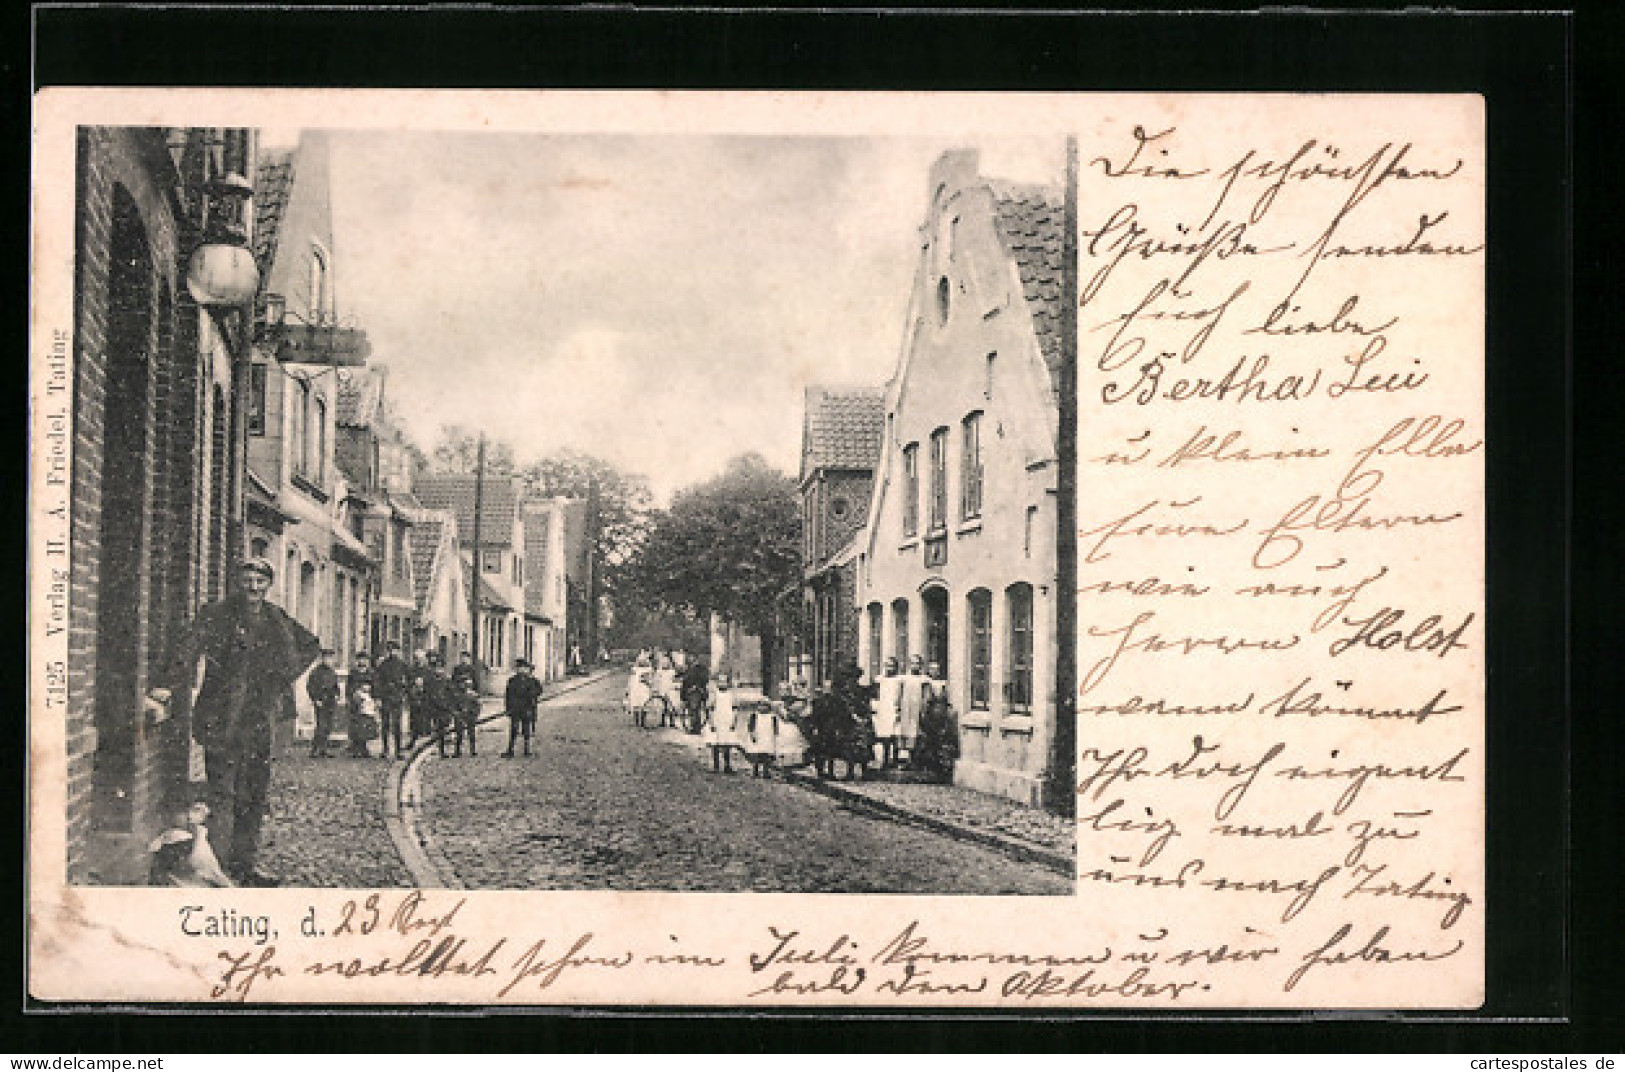 Die schönsten
Grüße senden
Euch liebe
Bertha Lui
u klein Ella
Eure Eltern
wie auch
Herrn Holst
wann kömmt
Ihr doch eigent
lig mal zu
uns nach Tating
7125 Verlag H. A. Friedel, Tating
Tating, d. 23 Sept
Ihr wolltet schon im Juli kommen u wir haben
bald den Oktober.
cartespostales de